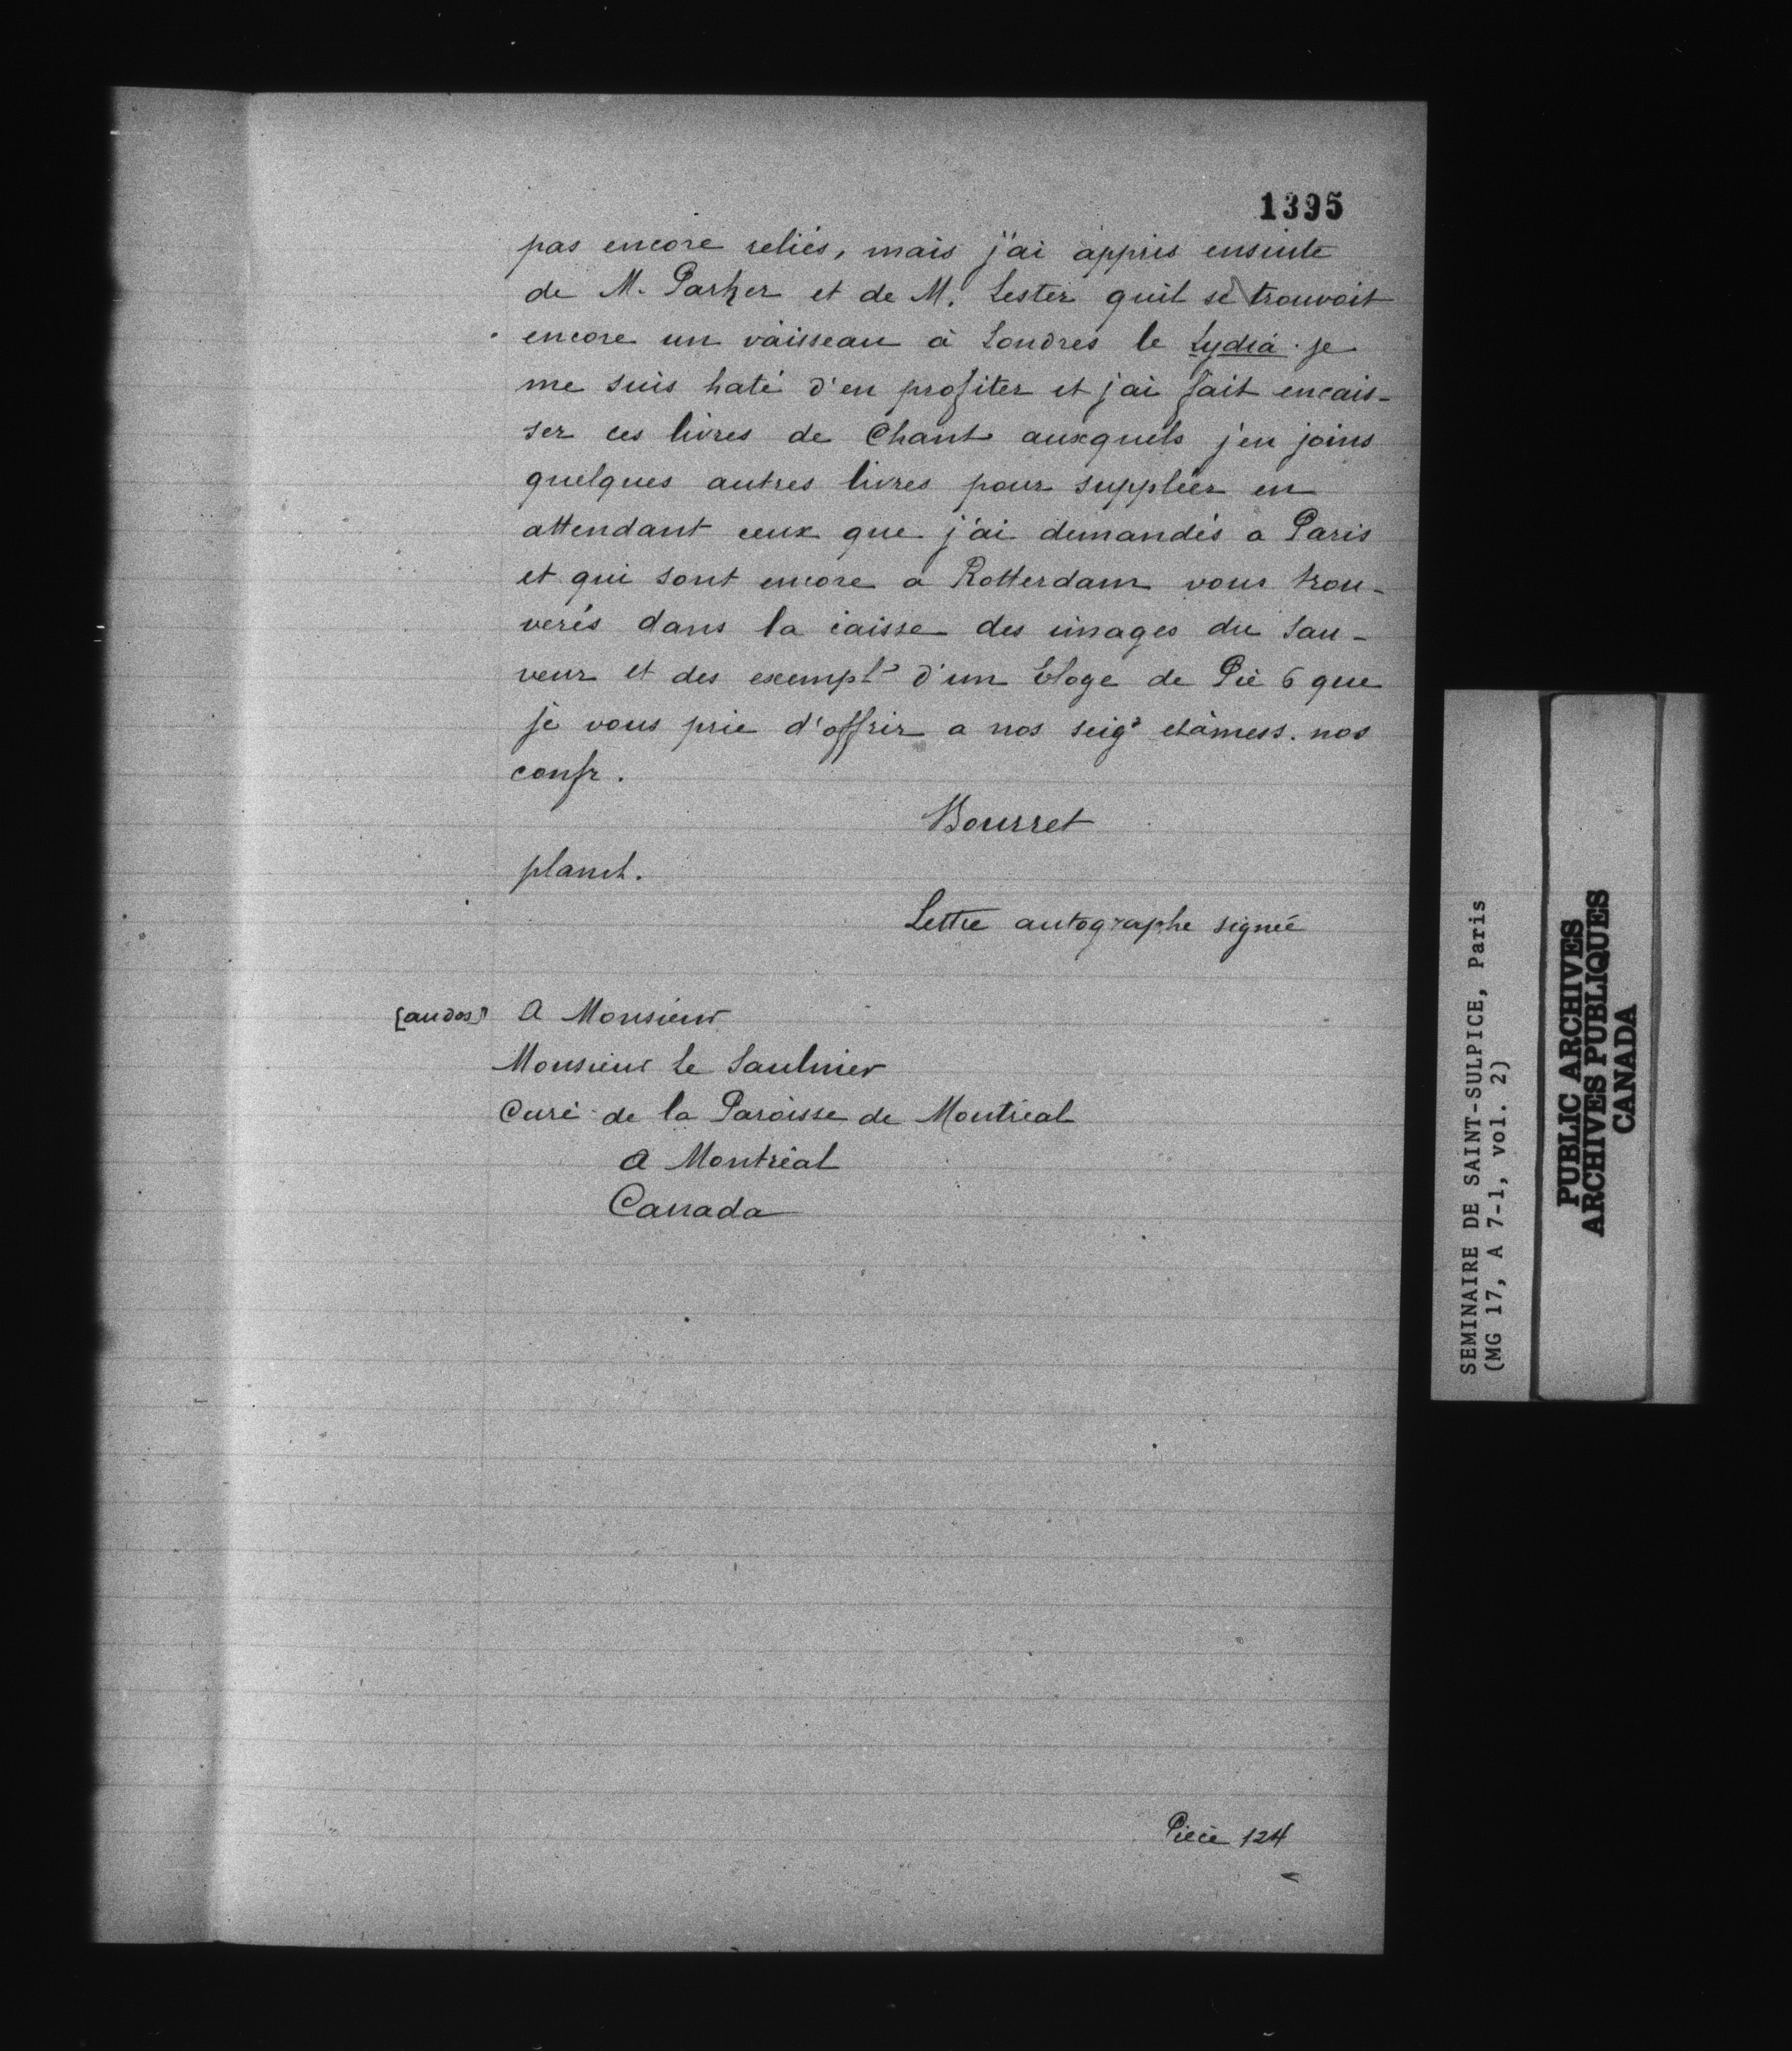 1395
pas encore reliés, mais j'ai appris ensuite
de M. Parker et de M. Lester quil se trouvoit
encore un vaisseau à Londres le Lydia. je
me suis haté d'en profiter et j'ai fait encais-
ser ces livres de Chant auxquels j'en joins
quelques autres livres pour suppléer en
attendant ceux que j'ai demandés a Paris
et qui sont encore a Rotterdam vous trou-
verés dans la caisse des images du Sau-
veur et des exempl.s d'un Eloge de Pie 6 que
je vous prie d'offrir a nos seigrs et à mess. nos
confr.
Bourret
planch.
Lettre autographe signée
[au dos] A Monsieur
Monsieur Le Saulnier
Curé de la Paroisse de Montréal
A Montréal
Canada
Pièce 124
SEMINAIRE DE SAINT-SULPICE, Paris
(MG 17, A 7-1, vol. 2)
PUBLIC ARCHIVES
ARCHIVES PUBLIQUES
CANADA